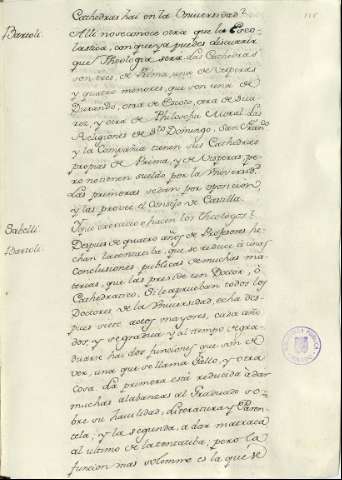 Cathedras hai en la Universidad?
Bartoli. Alli no se conoce otra que la Esco-
lastica, con que ya puedes discurrir
que Theologia sera. Las Cathedras
son tres, de Prima, una de Visperas
y quatro menores, que son una de
Durando, otra de Escoto, otra de Sua-
rez, y otra de Philosofia Moral. Las
Religiones de Sto. Domingo, San
y la Compañia tienen sus Cathedras
propias de Prima, y de Visperas, pe-
ro no tienen sueldo por la Universid.
Las primeras se dan por oposicion,
y las provee el Consejo de Castilla.
Sabelli. Y que exercicio hacen los Theologos?
Bartoli. Despues de quatro años de Profesores he-
chan la tentativa, que se reduce à unas
Conclusiones publicas de muchas ma-
terias, que las preside un Doctor, ò
Cathedratico. Si le aprueban todos los
Doctores de la Universidad, echa des-
pues siete actos mayores, cada año
dos, y se gradua y al tiempo de gra-
duarse hai dos funciones que son de
ver, una que se llama Gallo, y otra
cosa. La primera está reducida a dar
muchas alabanzas al Graduado so-
bre su havilidad, Literatura, y Paren-
tela; y la segunda, a dar matraca
al ultimo de la tentativa; pero la
funcion mas solemne es la que se